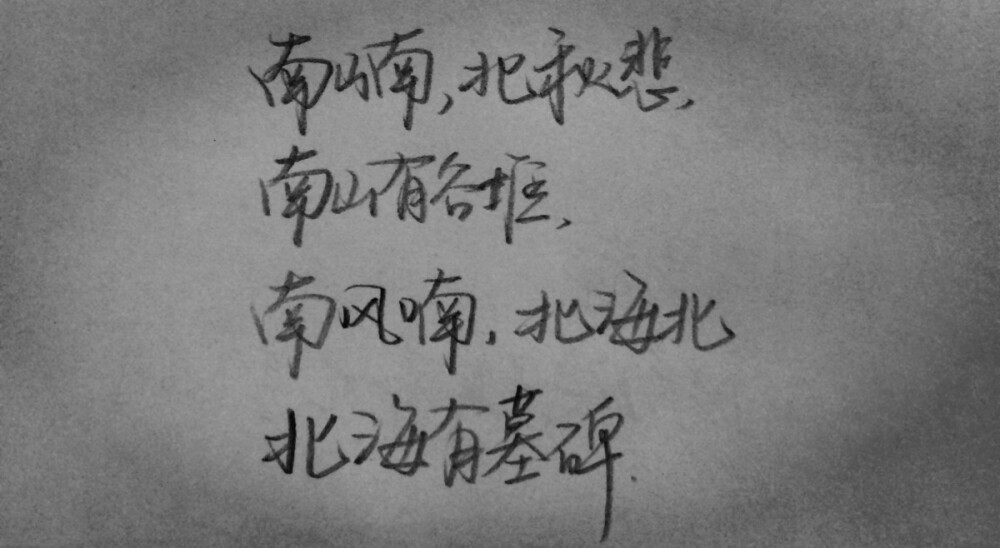 南山南,北秋悲,
南山有谷堆,
南风喃,北海北
北海有墓碑.